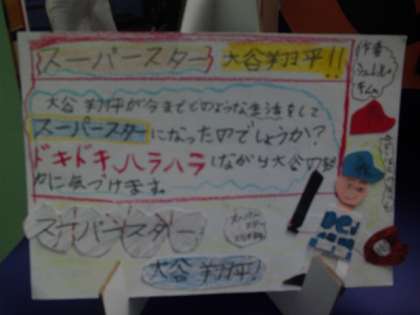 スーパースター 大谷翔平!!
大谷翔平が今までどのような生活をして
スーパースターになったのでしょうか?
ドキドキハラハラしながら大谷の努
力に気づけます。
スーパースター
大谷翔平!